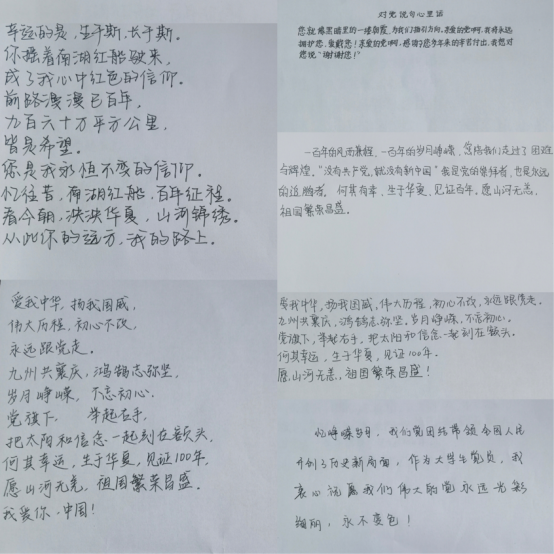 幸运的是,生于斯,长于斯。
你摇着南湖红船驶来,
成了我心中红色的信仰。
前路漫漫已百年,
九百六十万平方公里,
皆是希望。
你是我永恒不变的信仰。
忆往昔,南湖红船,百年征程。
看今朝,泱泱华夏,山河锦绣。
从此你的远方,我的路上。
对党说句心里话
您就像黑暗里的一缕朝霞,为我们指引方向,亲爱的党啊,我将永远
拥护您、爱戴您!亲爱的党啊,感谢您多年来的辛苦付出,我想对
您说“谢谢您!”
一百年的风雨兼程、一百年的岁月峥嵘、您陪我们走过了困难
与辉煌。“没有共产党,就没有新中国”我是党的崇拜者,也是永远
的追随者,何其有幸、生于华夏、见证百年,愿山河无恙、
祖国繁荣昌盛。
爱我中华,扬我国威,
伟大历程,初心不改,
永远跟党走。
九州共襄庆,鸿鹄志弥坚,
岁月峥嵘,不忘初心。
党旗下, 举起右手,
把太阳和信念一起刻在额头,
何其幸运,生于华夏,见证100年,
愿山河无恙,祖国繁荣昌盛。
我爱你,中国!
爱我中华,扬我国威,伟大历程,初心不改,永远跟党走。
九州共襄庆,鸿鹄志弥坚,岁月峥嵘,不忘初心。
党旗下,举起右手,把太阳和信念一起刻在额头。
何其幸运,生于华夏,见证100年。
愿山河无恙,祖国繁荣昌盛!
忆峥嵘岁月,我们党团结带领全国人民
开创了历史新局面,作为大学生党员,我
衷心祝愿我们伟大的党永远光彩
绚丽,永不变色!